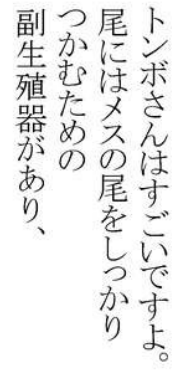 トンボさんはすごいですよ。
尾にはメスの尾をしっかり
つかむための
副生殖器があり、